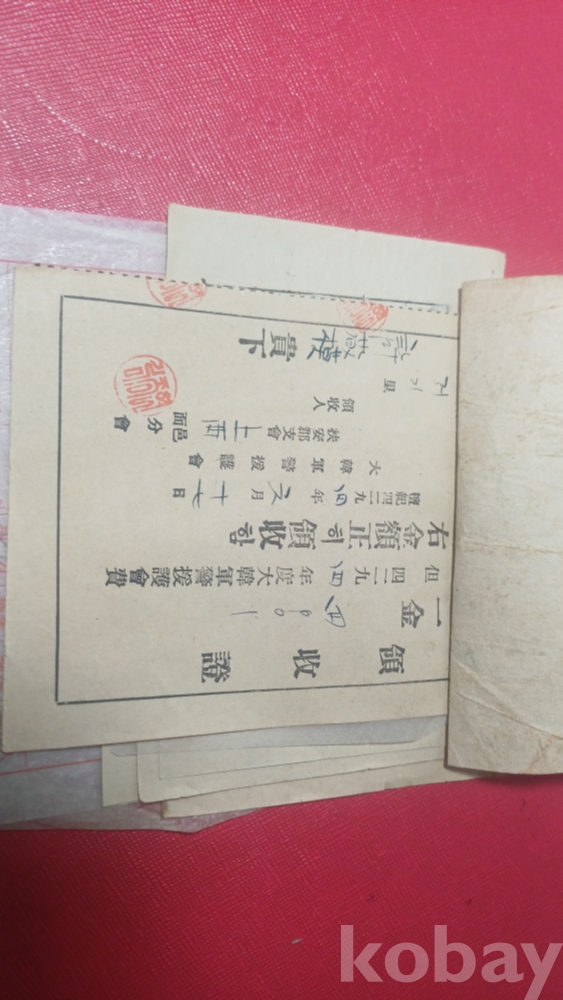 領收證
一金
但四二九四年度大韓軍警援護會費
右金額正히領收함
檀紀四二九四年六月十七日
大韓軍警援護會
扶安郡支會上西邑面分會
領收人
里
貴下
kobay